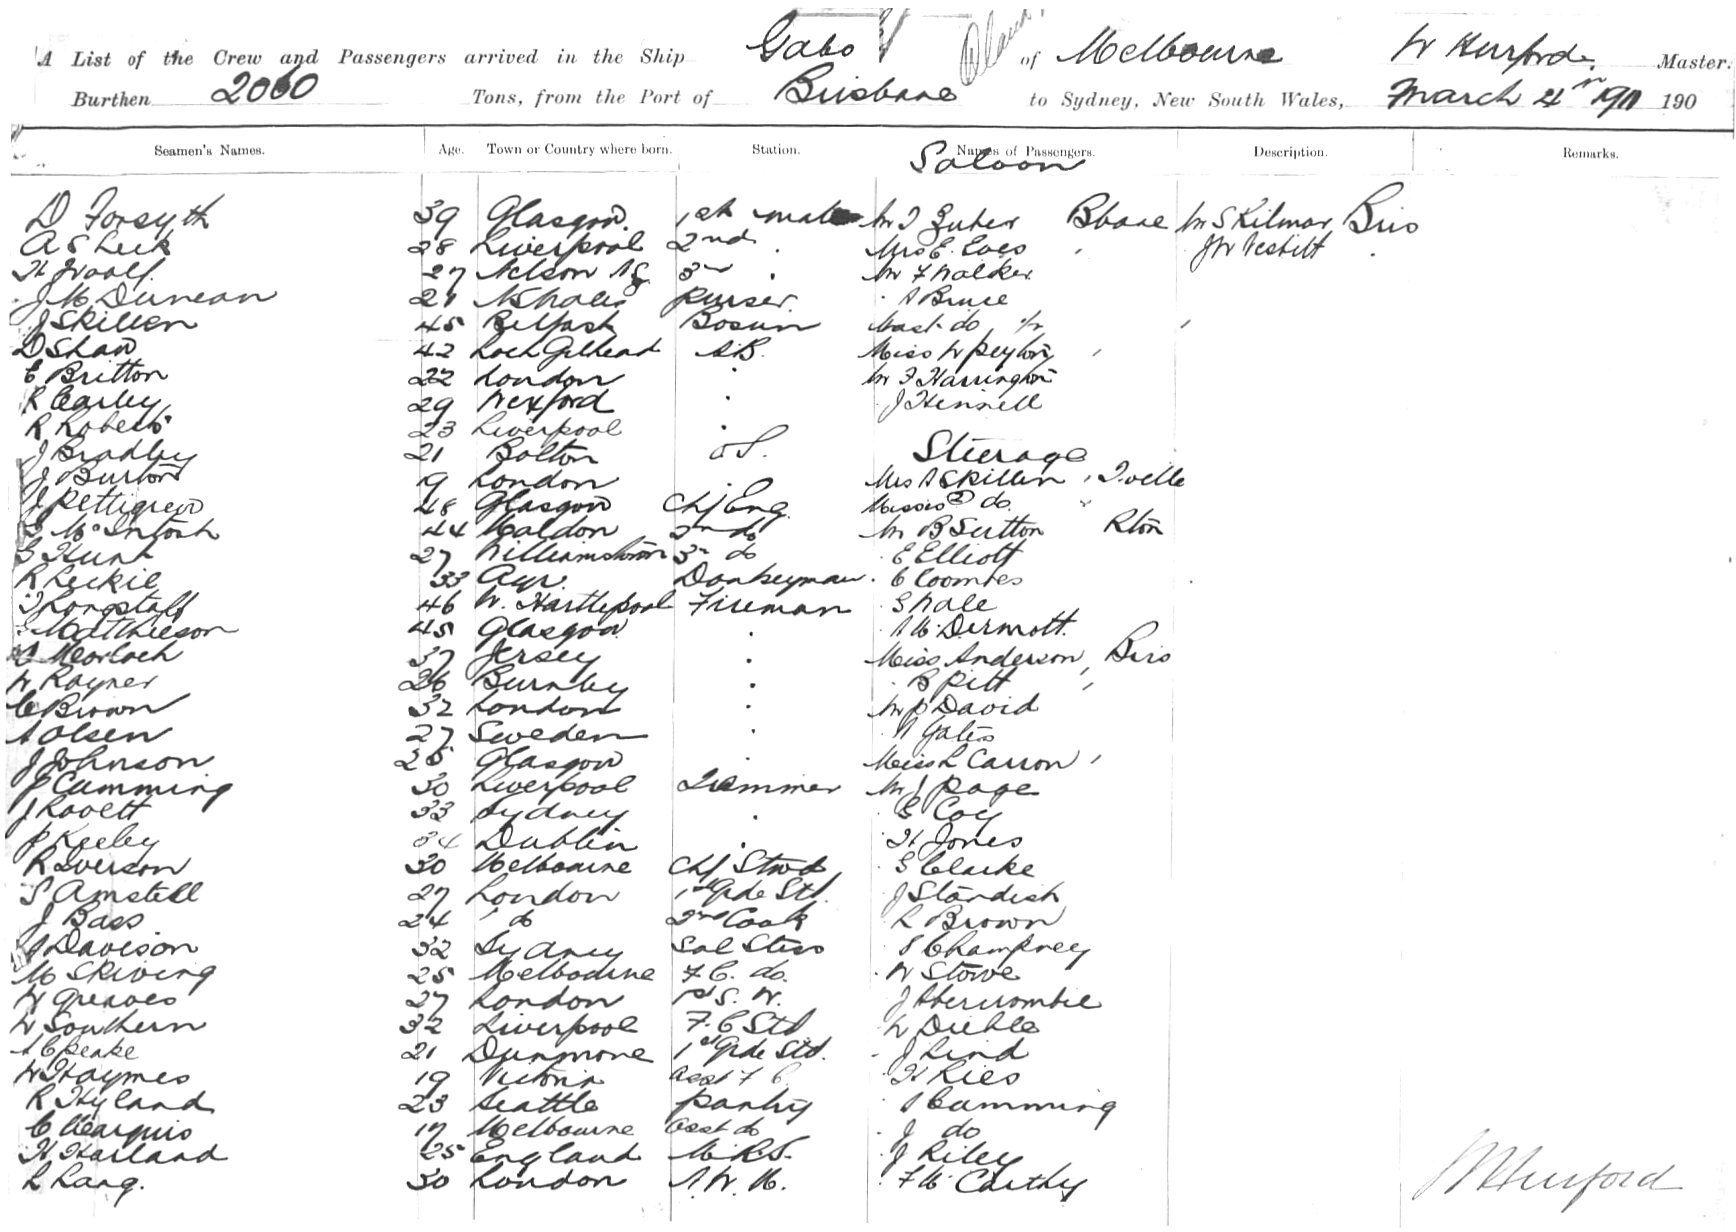 A List of the Crew and Passengers arrived in the Ship Gabo of Melbourne W Hurford Master.
Burthen 2060 Tons, from the Port of Brisbane to Sydney, New South Wales, March 4th 1911 190
Seamen's Names. Age. Town or Country where born. Station. Names of Passengers. Description. Remarks.
Saloon
D Forsyth 39 Glasgow 1st mate Mr J Zuber Bbane Mr S Kilmar Bris
A S Leck 28 Liverpool 2nd Mrs E Eves J W Nesbitt
H Woolf 27 Nelson NZ 3rd Mr F Walker
J McDuncan 21 N S Wales Purser A Bruce
J Skillen 45 Belfast Bosun Mast do
D Shaw 42 Loch Gilhead AB. Miss W Peyton
E Britton 22 London Mr F Harrington
R Carley 29 Wexford J Hennell
R Roberts 23 Liverpool
J Bradley 21 Bolton OS. Steerage
J Burton 19 London Mrs A Skillen Tvelle
J Pettigrew 48 Glasgow Chf Eng. Misses (2) do.
McIntosh 44 Maldon 2nd do Mr B Sutton Rton
S Hunt 27 Williamstown 3rd do E Elliott
R Leckie 33 Ayr. Donkeyman C Coombes
T Longstaff 46 W. Hartlepool Fireman S Wale
Mathieson 45 Glasgow A McDermott
Morloch 37 Jersey Miss Anderson, Bris
W Rayner 26 Burnley B Pitt
C Brown 32 London Mr P David
A Olsen 27 Sweden A Gates
J Johnson 25 Glasgow Miss L Carron
P Cumming 30 Liverpool Trimmer Mr J Page
J Lovett 33 Sydney E Coy
P Keeley 34 Dublin H Jones
R Iverson 30 Melbourne Chf Stwd S Clarke
S Amstell 27 London 1st Gde Std. J Standish
J Bass 24 do 2nd Cook R Brown
A Davison 32 Sydney Sal Stess A Champney
M Skiving 25 Melbourne F.C. do. W Stowe
W Greaves 27 London 1st S. W. J Abercrombie
W Southern 32 Liverpool F.C Std W Diehle
A C Peake 21 Dunmore 1st Gde Std. J Lind
W Haymes 19 Victoria Asst F C. H Ries
R Hyland 23 Seattle Pantry A Cumming
C Marquis 17 Melbourne Asst do J do
H Harland 25 England M.R.S. J Riley
L Lang. 30 London A.W.M. F McCarthy
W Hurford